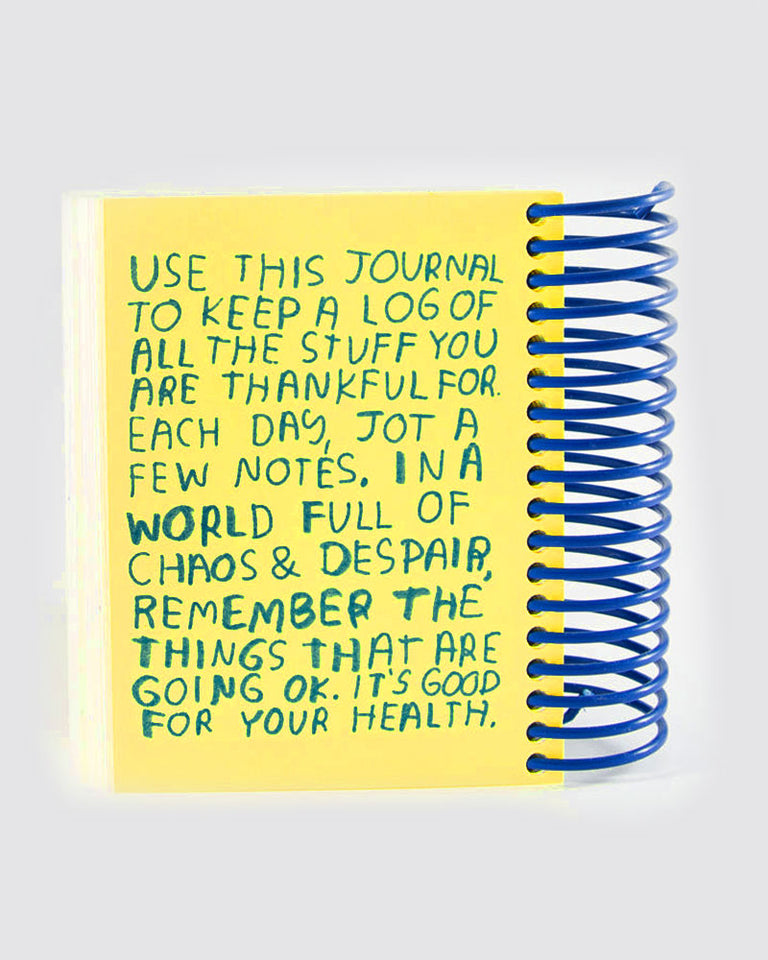 USE THIS JOURNAL
TO KEEP A LOG OF
ALL THE STUFF YOU
ARE THANKFUL FOR.
EACH DAY, JOT A
FEW NOTES. IN A
WORLD FULL OF
CHAOS & DESPAIR,
REMEMBER THE
THINGS THAT ARE
GOING OK. IT'S GOOD
FOR YOUR HEALTH.